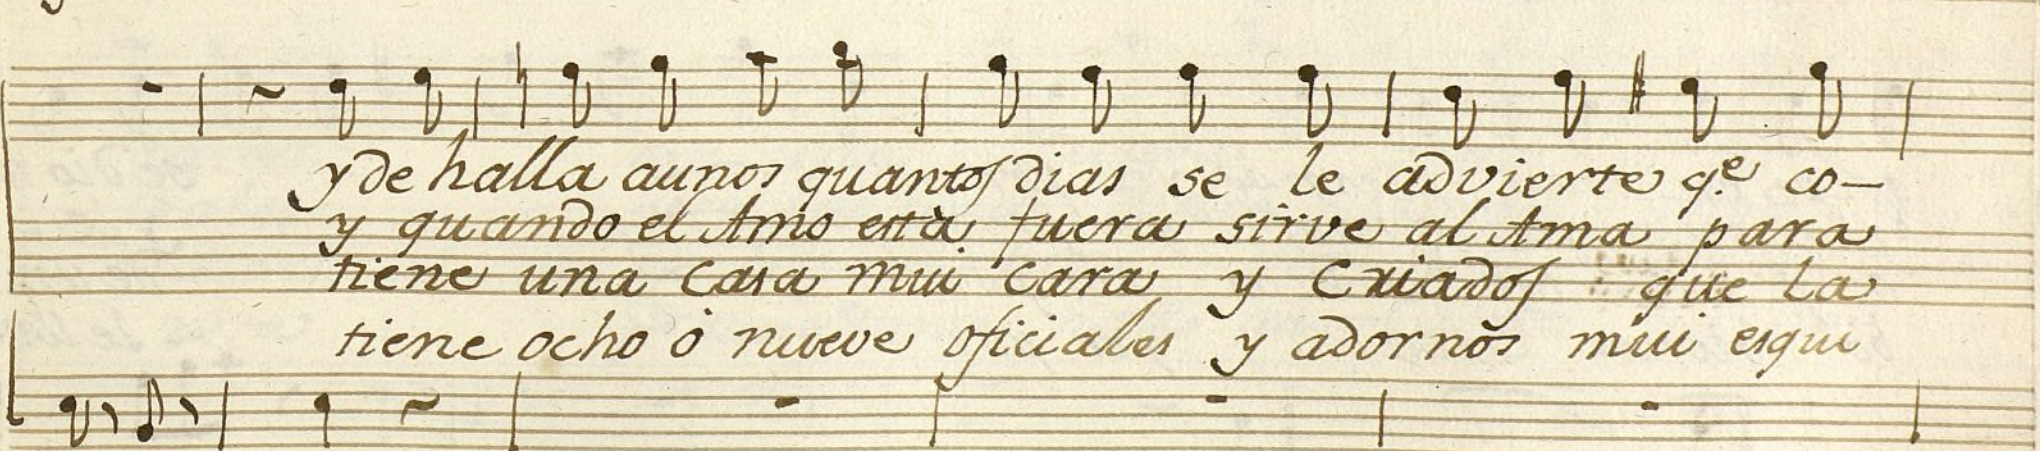 y de halla a unos quantos dias se le advierte q.e co-
y quando el Amo està fuera sirve al Ama para
tiene una casa mui cara y criados que la
tiene ocho ó nueve oficiales y adornos mui esqui